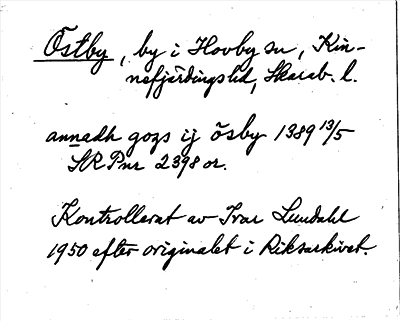 Östby, by i Hovby sn, Kin-
nefjärdings hd, Skarab. l.
annadh gozs ij ösby 1389 13/5
SRPnr 2398 or.
Kontrollerat av Ivar Lundahl
1950 efter originalet i Riksarkivet.